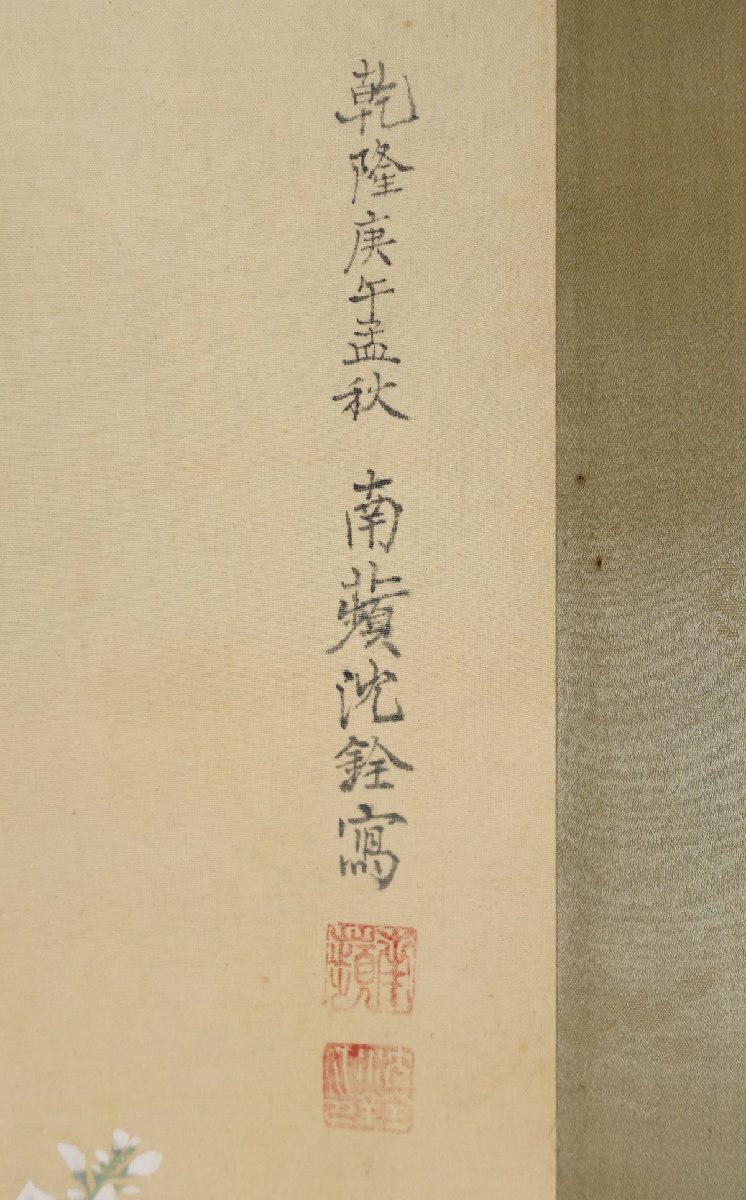 乾隆庚午孟秋 南蘋沈銓寫
南蘋